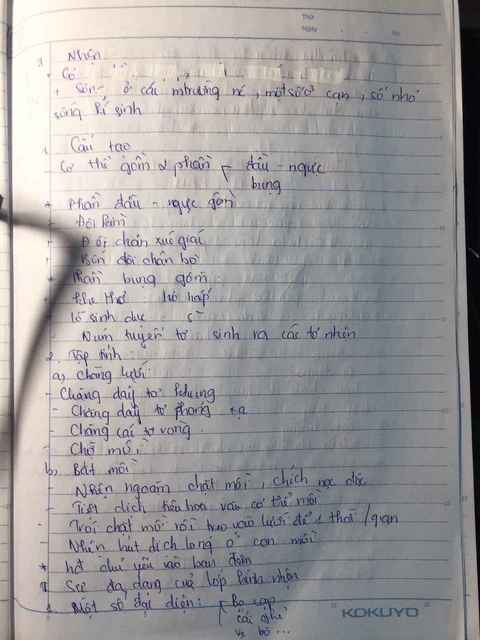 Nhện
- Có
+ Sống ở cái mtrường né, một số ở cạn, số nhỏ
sống kí sinh
1 Cấu tạo
Cơ thể gồm 2 phần đầu - ngực
bụng
* Phần đầu - ngực gồm
- Đôi kìm
- Đôi chân xúc giác
- Bốn đôi chân bò
* Phần bụng gồm
- khe thở hô hấp
- lỗ sinh dục
- Núm tuyến tơ sinh ra các tơ nhện
2. Tập tính:
a, Chăng lưới:
- Chăng dây tơ khung
- Chăng dây tơ phóng xạ
- Chăng các tơ vòng.
- Chờ mồi
b, Bắt mồi
- Nhện ngoạm chặt mồi, chích nọc độc
- Tiết dịch tiêu hóa vào cơ thể mồi
- Trói chặt mồi rồi treo vào lưới để 1 thời/gian
- Nhện hút dịch lỏng ở con mồi
* hđ chủ yếu vào ban đêm
3 Sự đa dạng của lớp hình nhện
1 Một số đại diện: Bọ cạp
cái ghẻ
ve bò...
KOKUYO